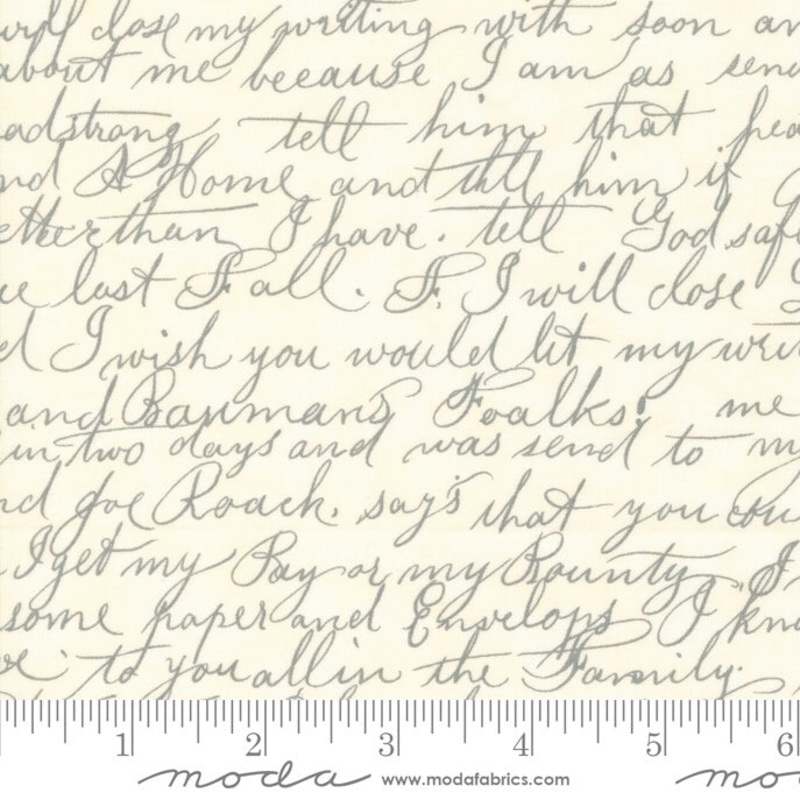 will close my writing with soon an
about me because I am as send
adstrong tell him that hea
nd A Home and till him if
etter than I have. tell God safe
ue last Fall. F. I will close
d I wish you would let my wri
and Baumans Foalks! me
in two days and was send to my
nd Joe Roach. say's that you cou
I get my Pay or my Bounty I
some paper and Envelops I kno
to you all in the Family.
1 2 3 4 5 6
moda www.modafabrics.com mo